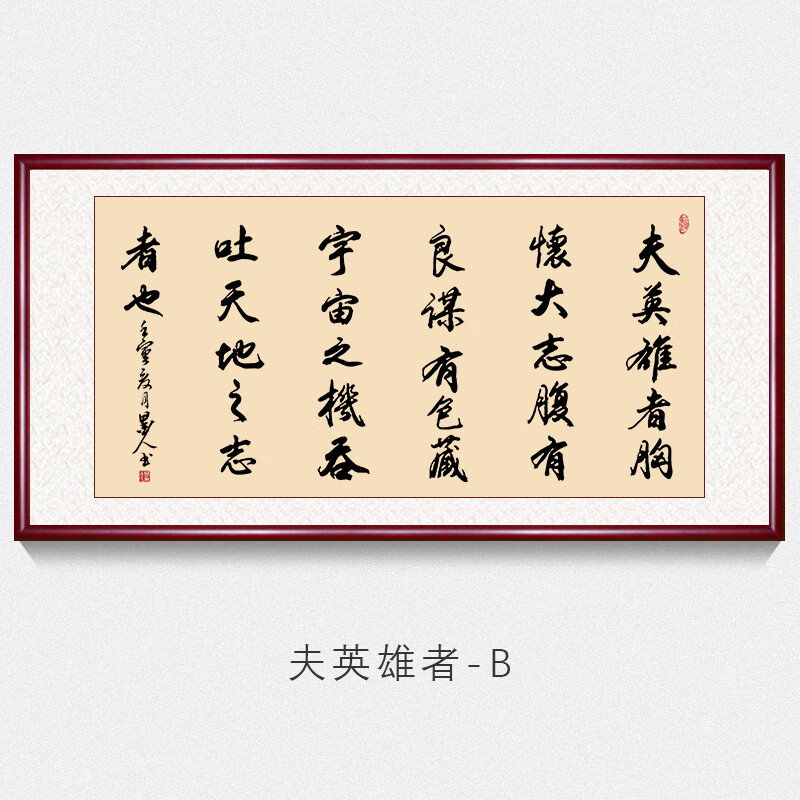 夫英雄者胸
懷大志腹有
良謀有包藏
宇宙之機吞
吐天地之志
者也
壬寅夏月墨人书
夫英雄者-B